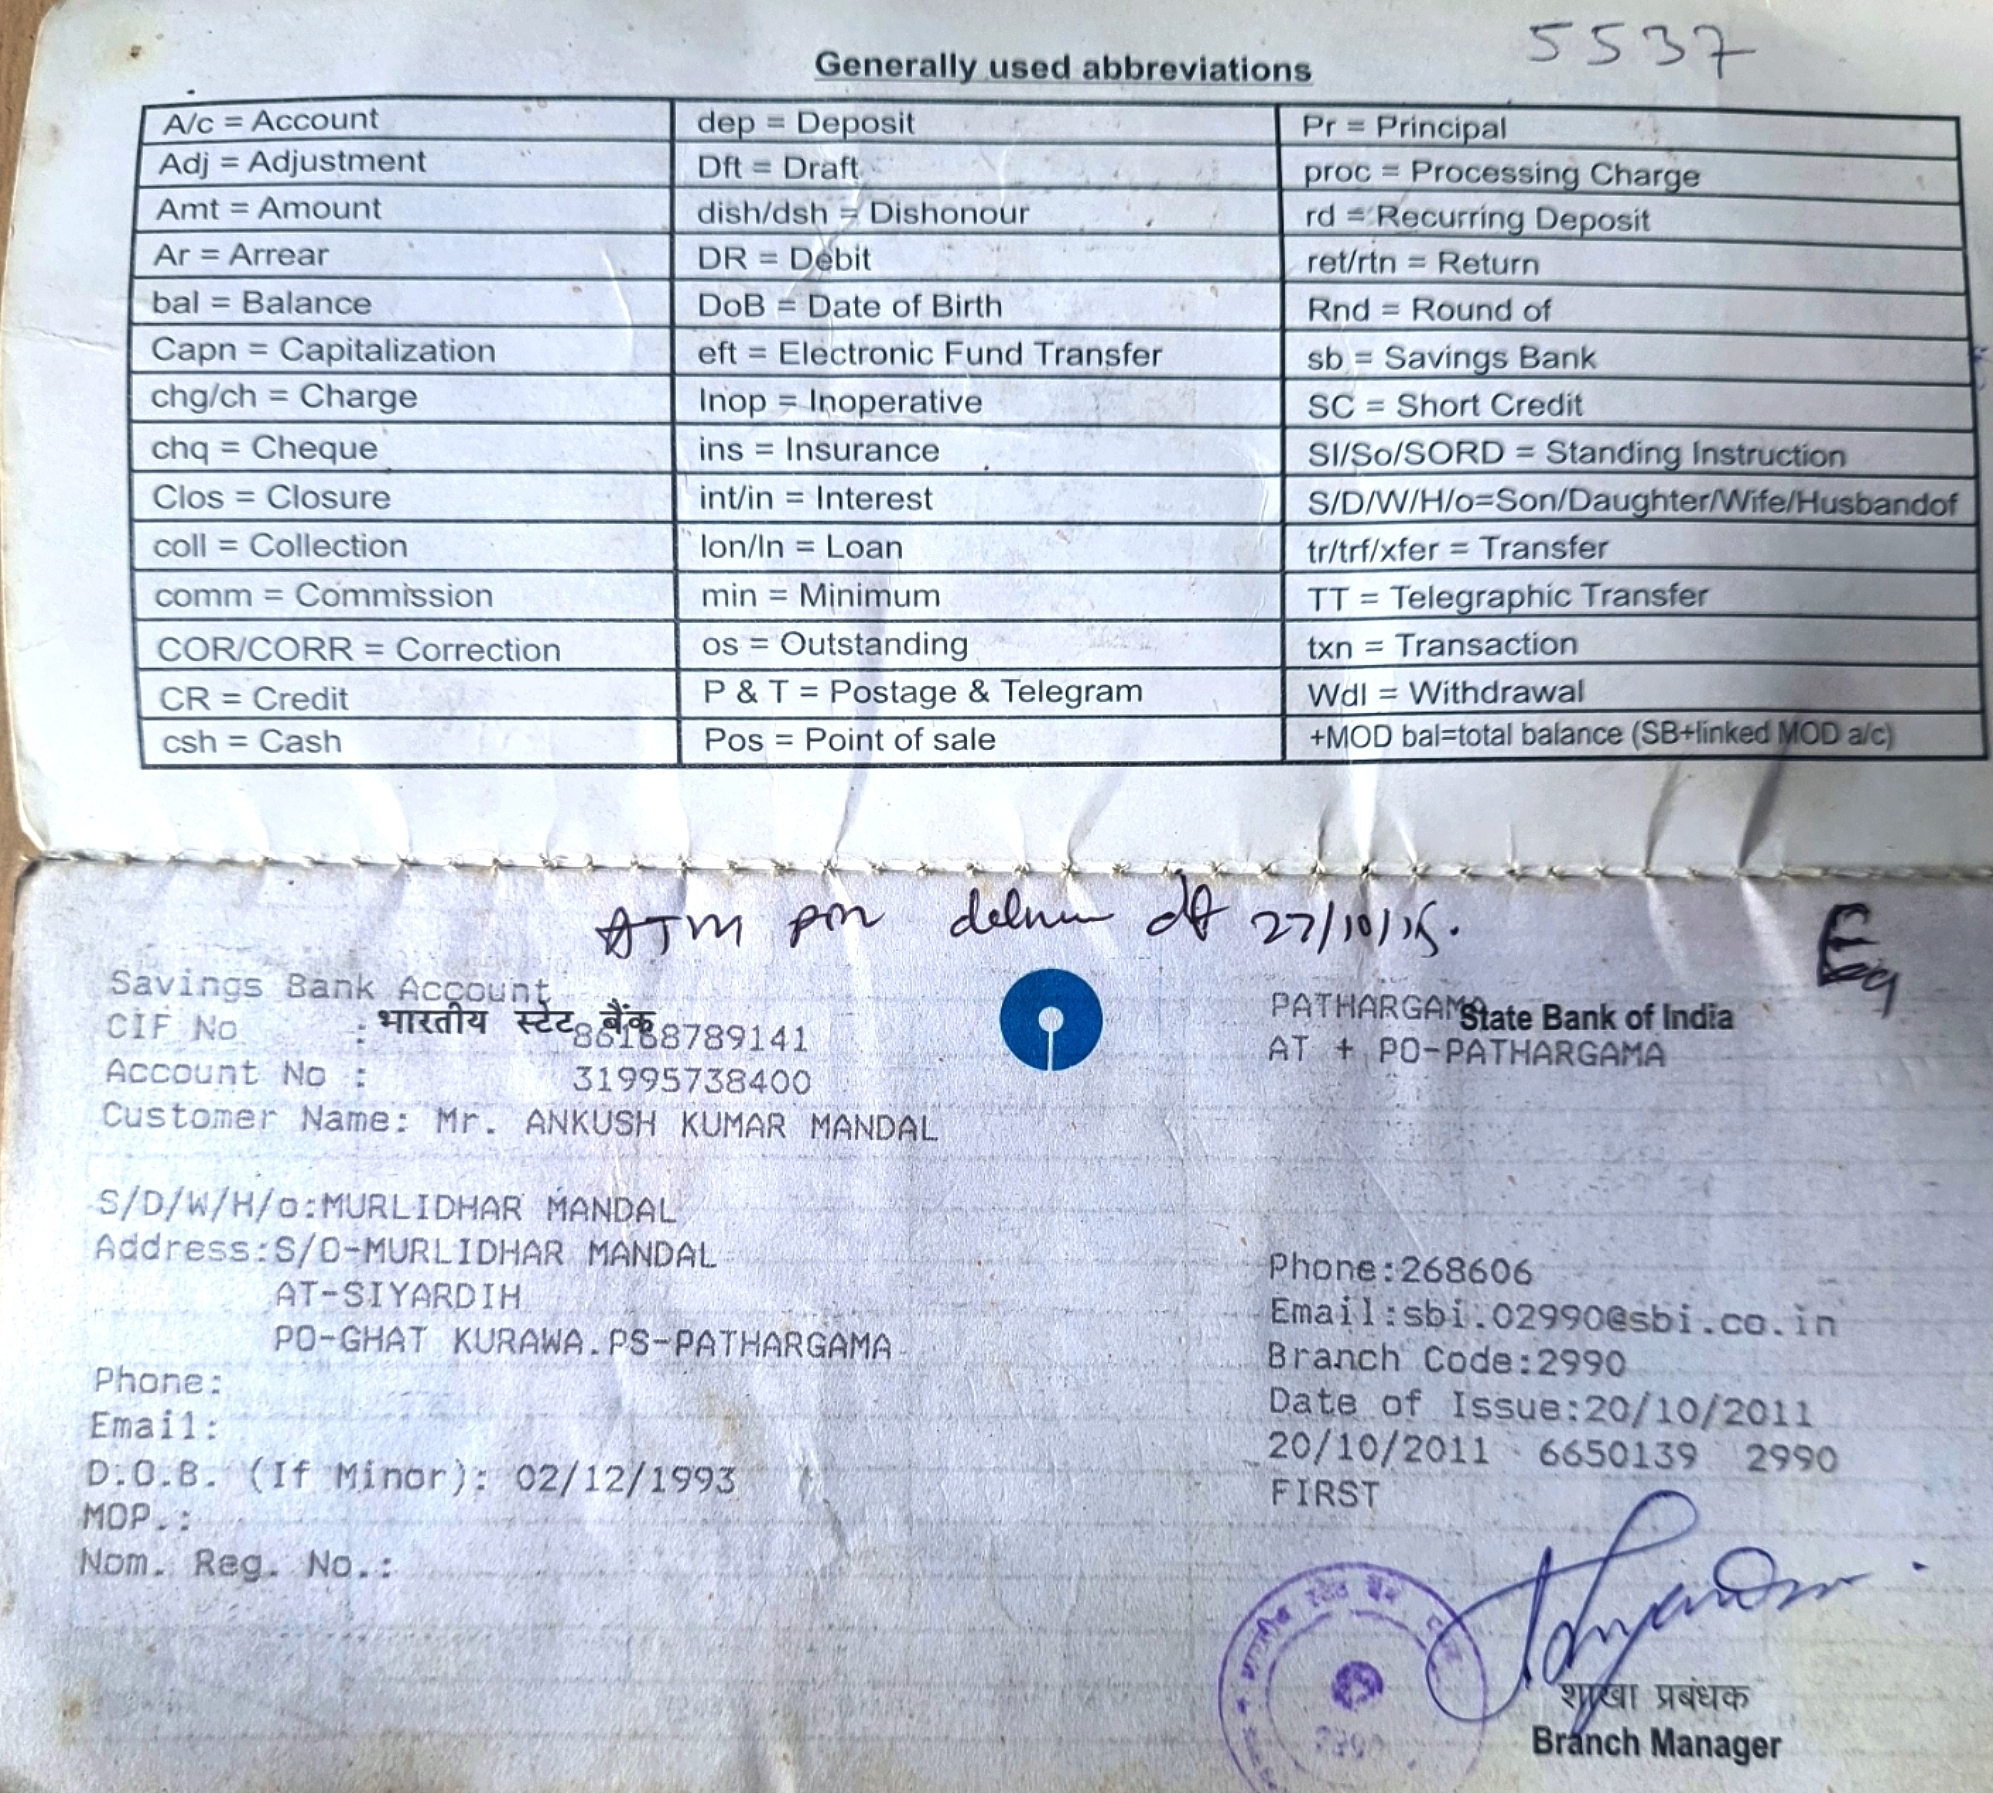 5537
Generally used abbreviations
A/c = Account
dep = Deposit
Pr = Principal
Adj = Adjustment
Dft = Draft
proc = Processing Charge
Amt = Amount
dish/dsh = Dishonour
rd = Recurring Deposit
Ar = Arrear
DR = Debit
ret/rtn = Return
bal = Balance
DoB = Date of Birth
Rnd = Round of
Capn = Capitalization
eft = Electronic Fund Transfer
sb = Savings Bank
chg/ch = Charge
Inop = Inoperative
SC = Short Credit
chq = Cheque
ins = Insurance
SI/So/SORD = Standing Instruction
Clos = Closure
int/in = Interest
S/D/W/H/o=Son/Daughter/Wife/Husbandof
coll = Collection
lon/ln = Loan
tr/trf/xfer = Transfer
comm = Commission
min = Minimum
TT = Telegraphic Transfer
COR/CORR = Correction
os = Outstanding
txn = Transaction
CR = Credit
P & T = Postage & Telegram
Wdl = Withdrawal
csh = Cash
Pos = Point of sale
+MOD bal=total balance (SB+linked MOD a/c)
ATM pin
Savings Bank Account
भारतीय स्टेट बैंक
CIF No :
Account No : 31995738400
Customer Name: Mr. ANKUSH KUMAR MANDAL
S/D/W/H/o:MURLIDHAR MANDAL
Address:S/O-MURLIDHAR MANDAL
AT-SIYARDIH
PO-GHAT KURAWA.PS-PATHARGAMA
Phone:
Email:
D.O.B. (If Minor): 02/12/1993
MOP.:
Nom. Reg. No.:
PATHARGAMA
State Bank of India
AT + PO-PATHARGAMA
Phone:268606
Email:sbi.02990@sbi.co.in
Branch Code:2990
Date of Issue:20/10/2011
20/10/2011 6650139 2990
FIRST
शाखा प्रबंधक
Branch Manager